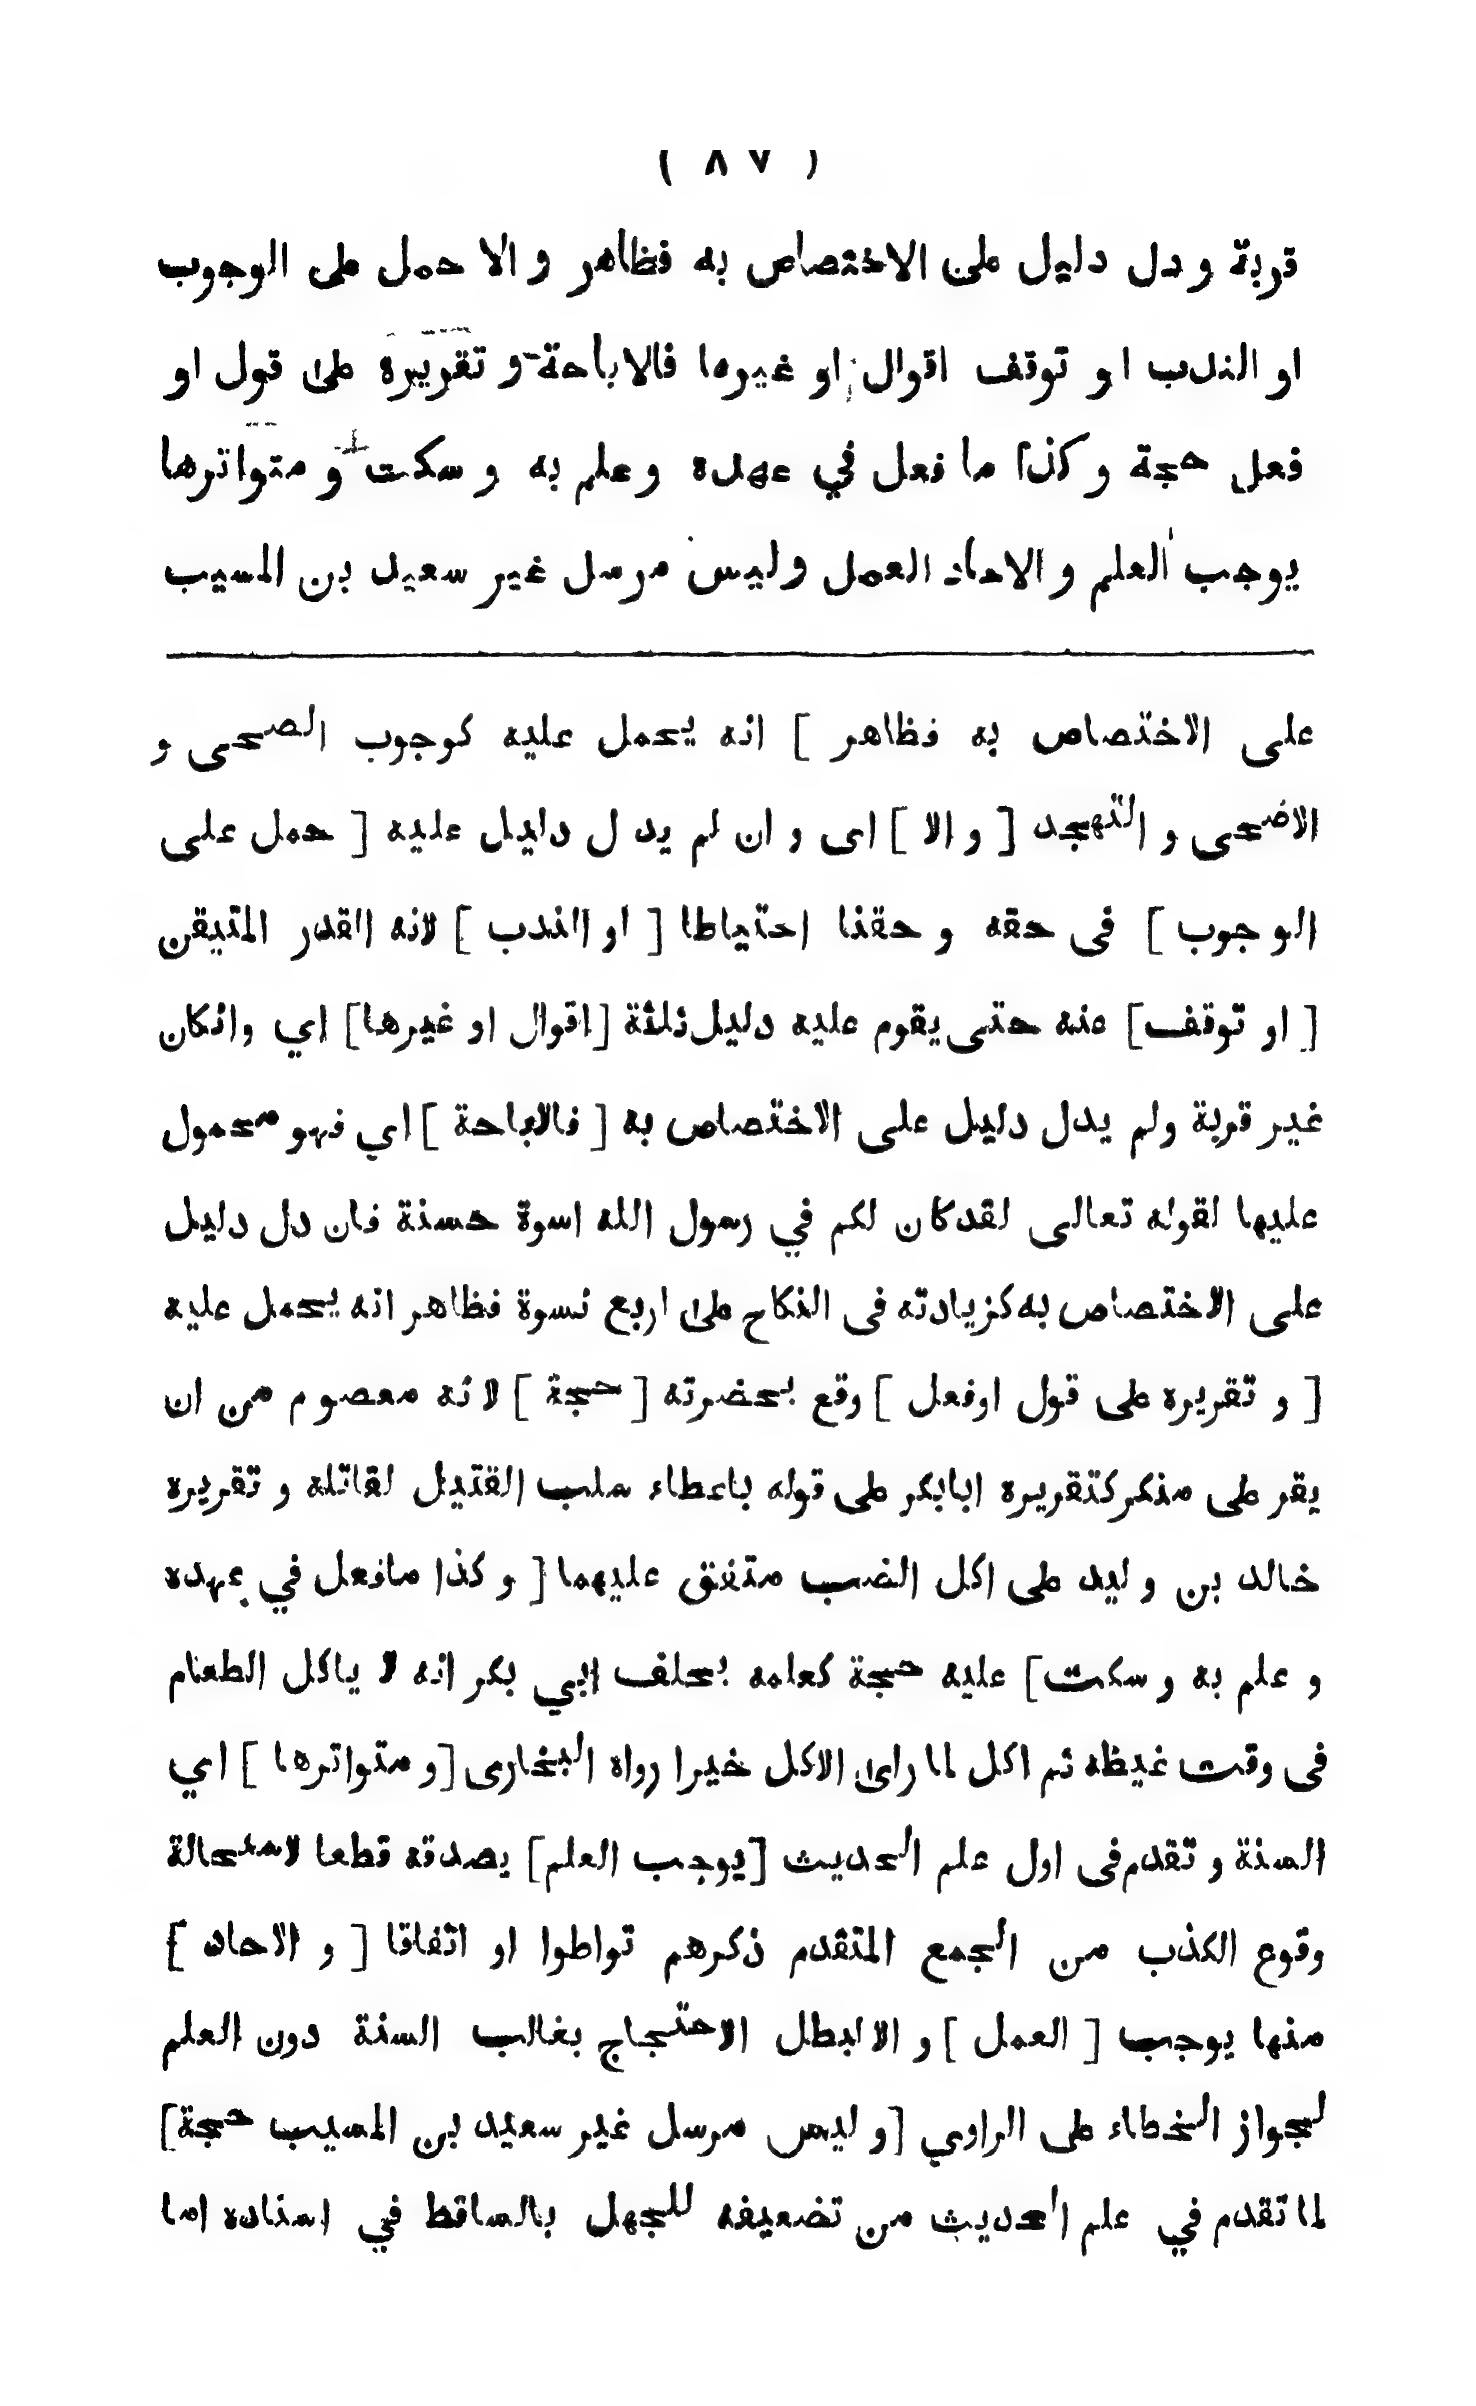 ( ٨٧ )
قربة ودل دليل على الاختصاص به فظاهر و الا حمل على الوجوب
او الندب او توقف اقوال او غيرها فالاباحة و تقريره على قول او
فعل حجة و كذا ما فعل في عهده و علم به و سكت و متواترها
يوجب العلم و الاحاد العمل وليس مرسل غير سعيد بن المسيب
على الاختصاص به فظاهر ] انه يحمل عليه كوجوب الضحى و
الاضحى و التهجد [ و الا ] اى و ان لم يدل دليل عليه [ حمل على
الوجوب ] فى حقه و حقنا احتياطا [ او الندب ] لانه القدر المتيقن
[ او توقف] عنه حتى يقوم عليه دليل ثلثة [اقوال او غيرها] اي وانكان
غير قربة ولم يدل دليل على الاختصاص به [ فالاباحة ] اي فهو محمول
عليها لقوله تعالى لقدكان لكم في رسول الله اسوة حسنة فان دل دليل
على الاختصاص به كزيادته فى النكاح على اربع نسوة فظاهر انه يحمل عليه
[ و تقريره على قول اوفعل ] وقع بحضرته [ حجة ] لانه معصوم من ان
يقر على منكر كتقريره ابابكر على قوله باعطاء سلب القتيل لقاتله و تقريره
خالد بن وليد على اكل الضب متفق عليهما [ و كذا مافعل في عهده
و علم به و سكت] عليه حجة كعلمه بحلف ابي بكر انه لا ياكل الطعام
فى وقت غيظه ثم اكل لما راى الاكل خيرا رواه البخارى [و متواترها ] اي
السنة و تقدم فى اول علم الحديث [يوجب العلم] بصدقه قطعا لاستحالة
وقوع الكذب من الجمع المتقدم ذكرهم تواطوا او اتفاقا [ و الاحاد ]
منها يوجب [ العمل ] و الا لبطل الاحتجاج بغالب السنة دون العلم
لجواز الخطاء على الراوي [و ليس مرسل غير سعيد بن المسيب حجة]
لما تقدم في علم الحديث من تضعيفه للجهل بالساقط في اسناده اما